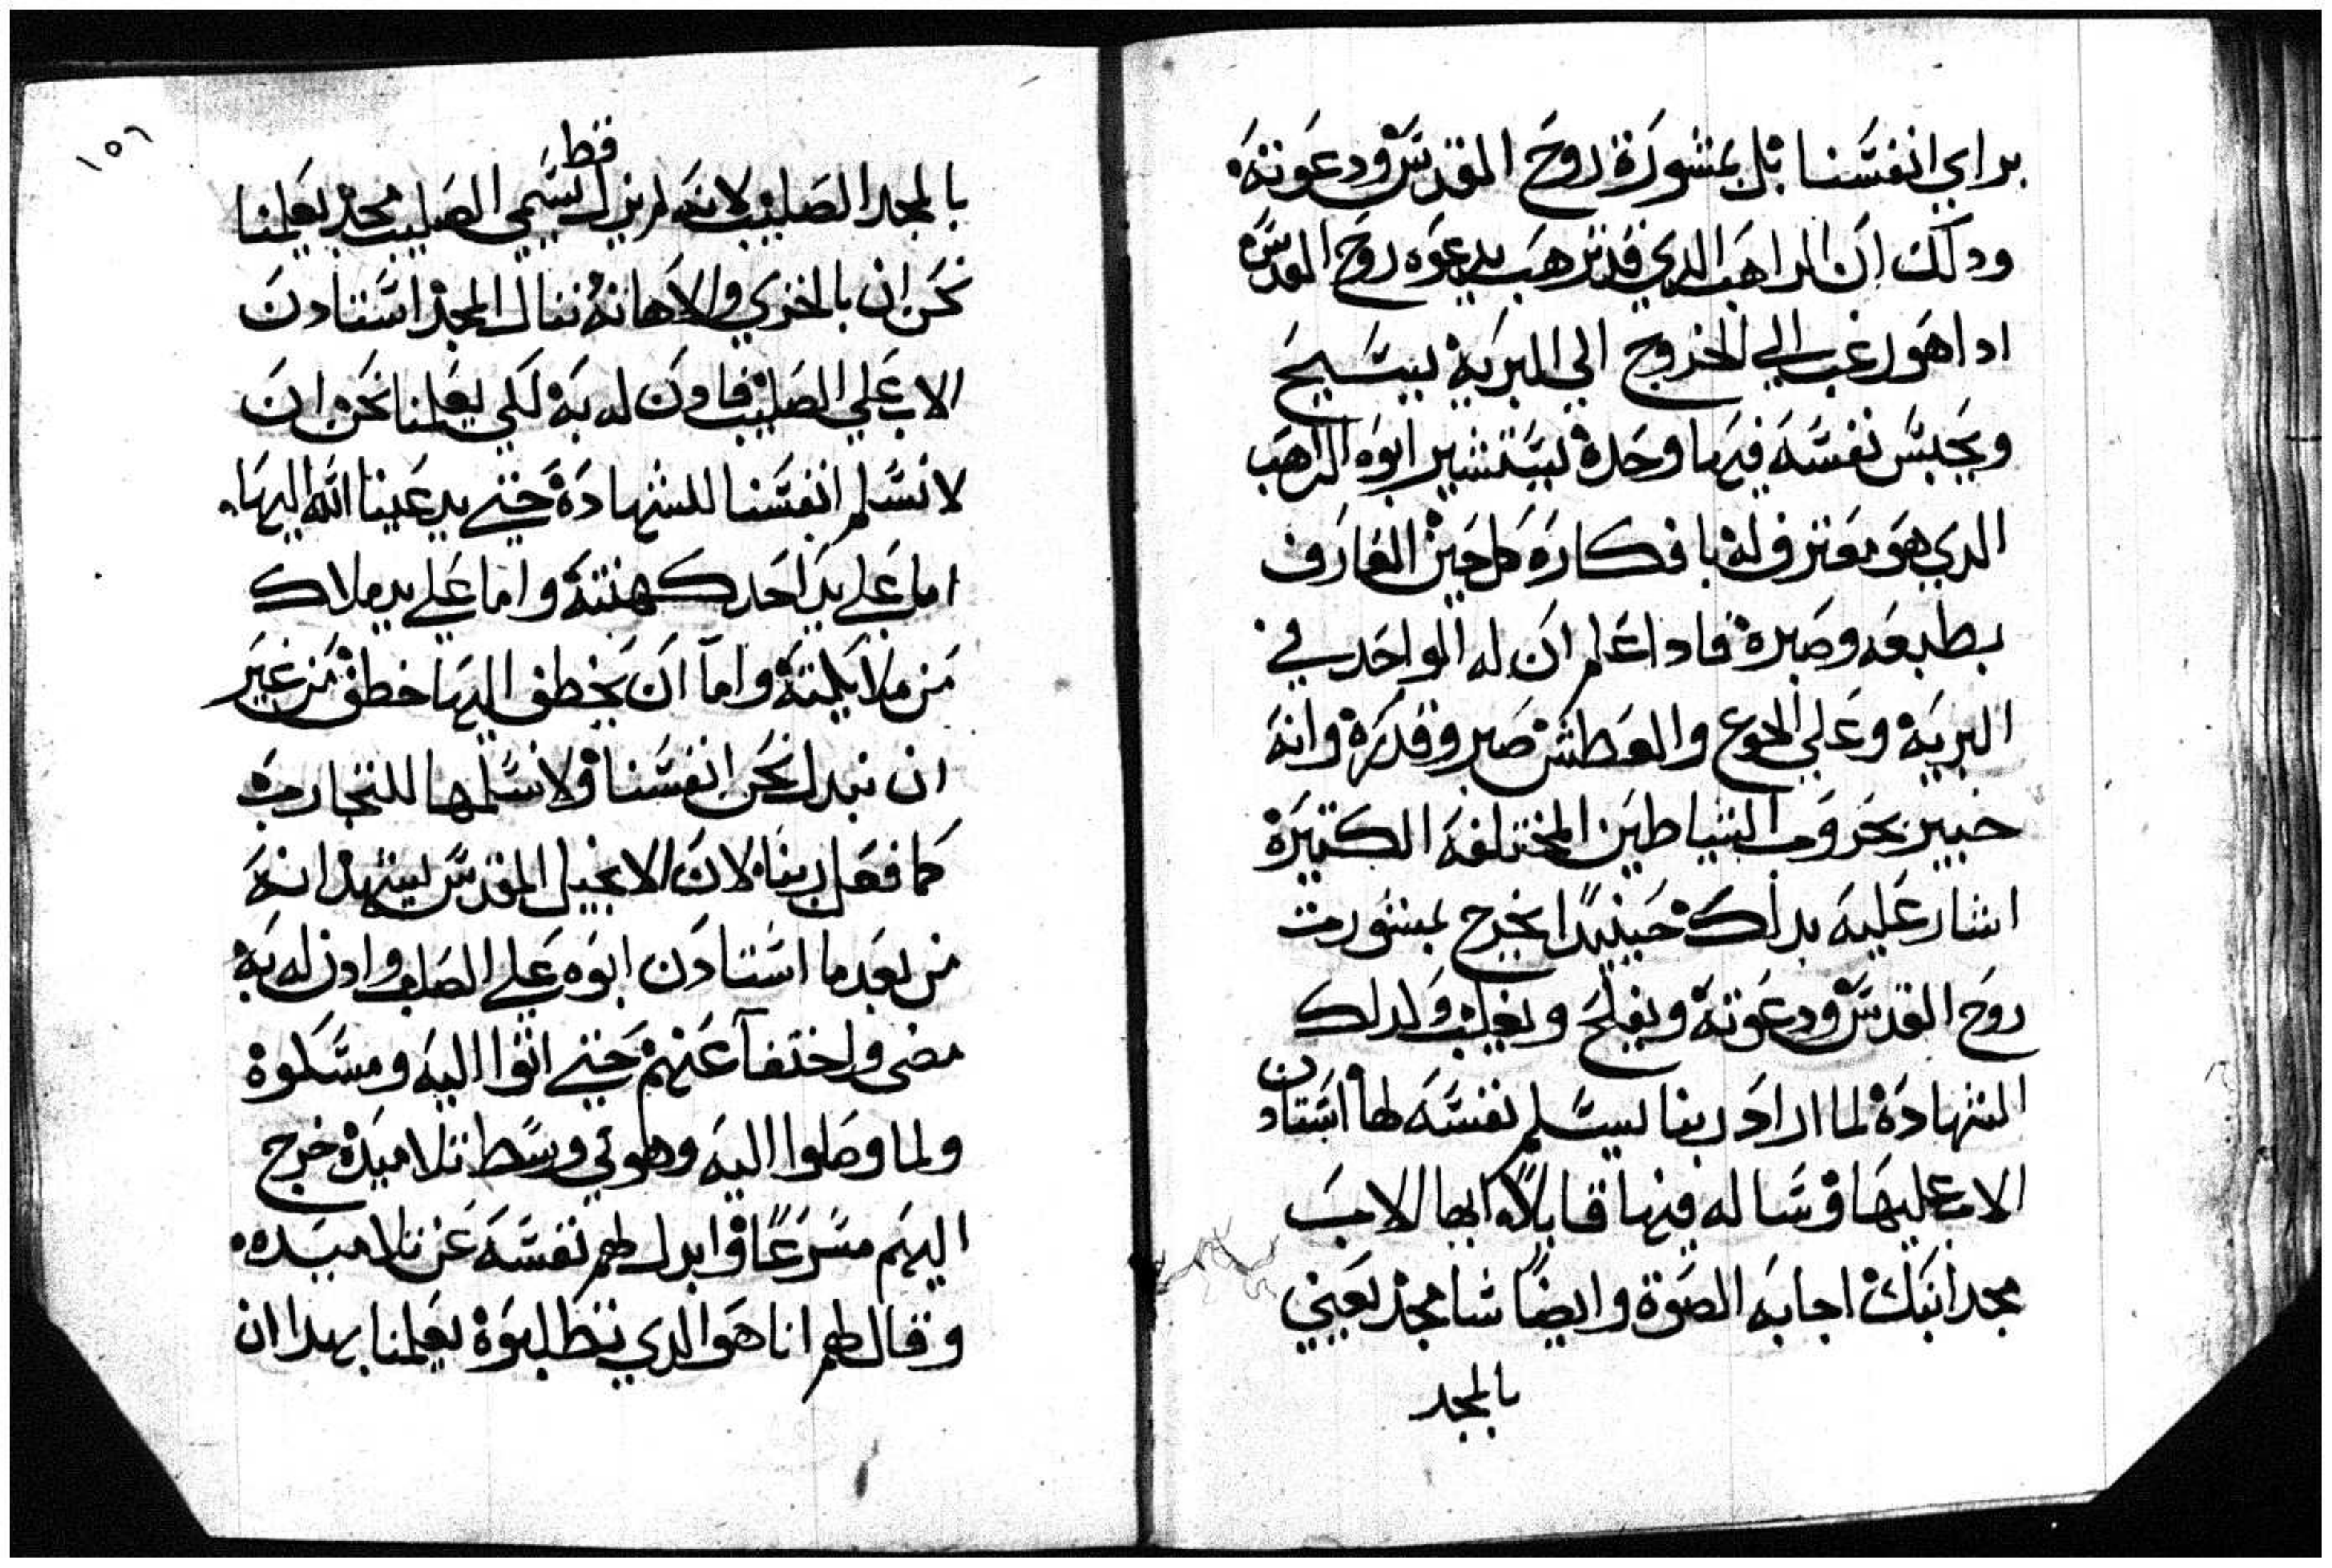 براي انفسنا بل بمشورة روح القدس ودعوته
ودلك ان الراهب الدي قد ترهب بدعوه روح القدس
ادا هو رغب الي الخروج الي البريه ليسيح
ويحبس نفسه فيها وحدة ليستشير ابوه الراهب
الدي هو معترف له بافكاره كل حين العارف
بطبعه وصبرة فادا علم ان له الواحد في
البريه وعلي الجوع والعطش صبر وقدرة وانه
خبير بحروب الشياطين المختلفه الكتيرة
اشار عليه بدلك حينيدا يخرج بمشورت
روح القدس ودعوته ويفلح ويغلب ولدلك
الشهادة لما اراد ربنا ليسلم نفسه لها استادن
الاب عليها وساله فيها قايلا ايها الاب
مجد ابنك اجابه الصوة وايضا شامجد يعني
بالمجد
١٥٦
بالمجد الصليب لانه لم يزل قط يسمي الصليب مجد يعلمنا
نحن ان بالخزي والاهانه ننال المجد استادن
الاب علي الصليب فادن له به لكي يعلمنا نحن ان
لا نسلم انفسنا للشهادة حتي يدعينا الله اليها.
اما علي يد احد كهنته واما علي يد ملاك
من ملايكته واما ان يخطف اليها خطف من غير
ان نبدل نحن انفسنا ولا نسلمها للتجارب
كما فعل ربنا لان الانجيل المقدس يشهد انه
من بعد ما استادن ابوه علي الصلب وادن له به
مضي واختفا عنهم حتي اتوا اليه ومسكوة
ولما وصلوا اليه وهو في وسط تلاميدة خرج
اليهم مسرعا وابدل لهم نفسه عن تلاميده.
وقال لهم انا هو الدي تطلبوة يعلمنا بهدا ان